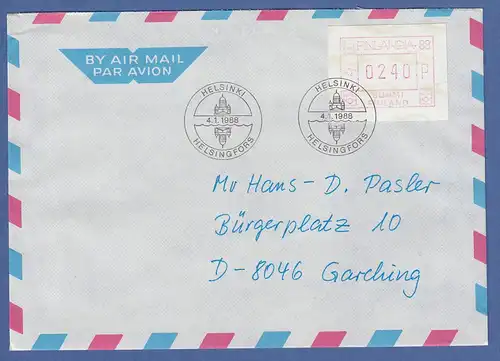 BY AIR MAIL
PAR AVION
FINLANDIA 88
0240 P
SUOMI
FINLAND
HELSINKI
4.1.1988
HELSINGFORS
HELSINKI
4.1.1988
HELSINGFORS
Mr Hans-D. Pasler
Bürgerplatz 10
D-8046 Garching